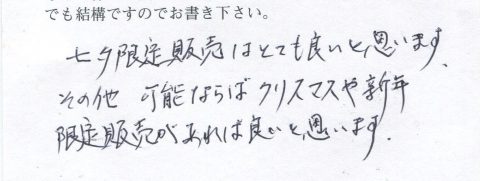 でも結構ですのでお書き下さい。
七夕限定販売はとても良いと思います。
その他 可能ならば クリスマスや新年
限定販売があれば良いと思います。